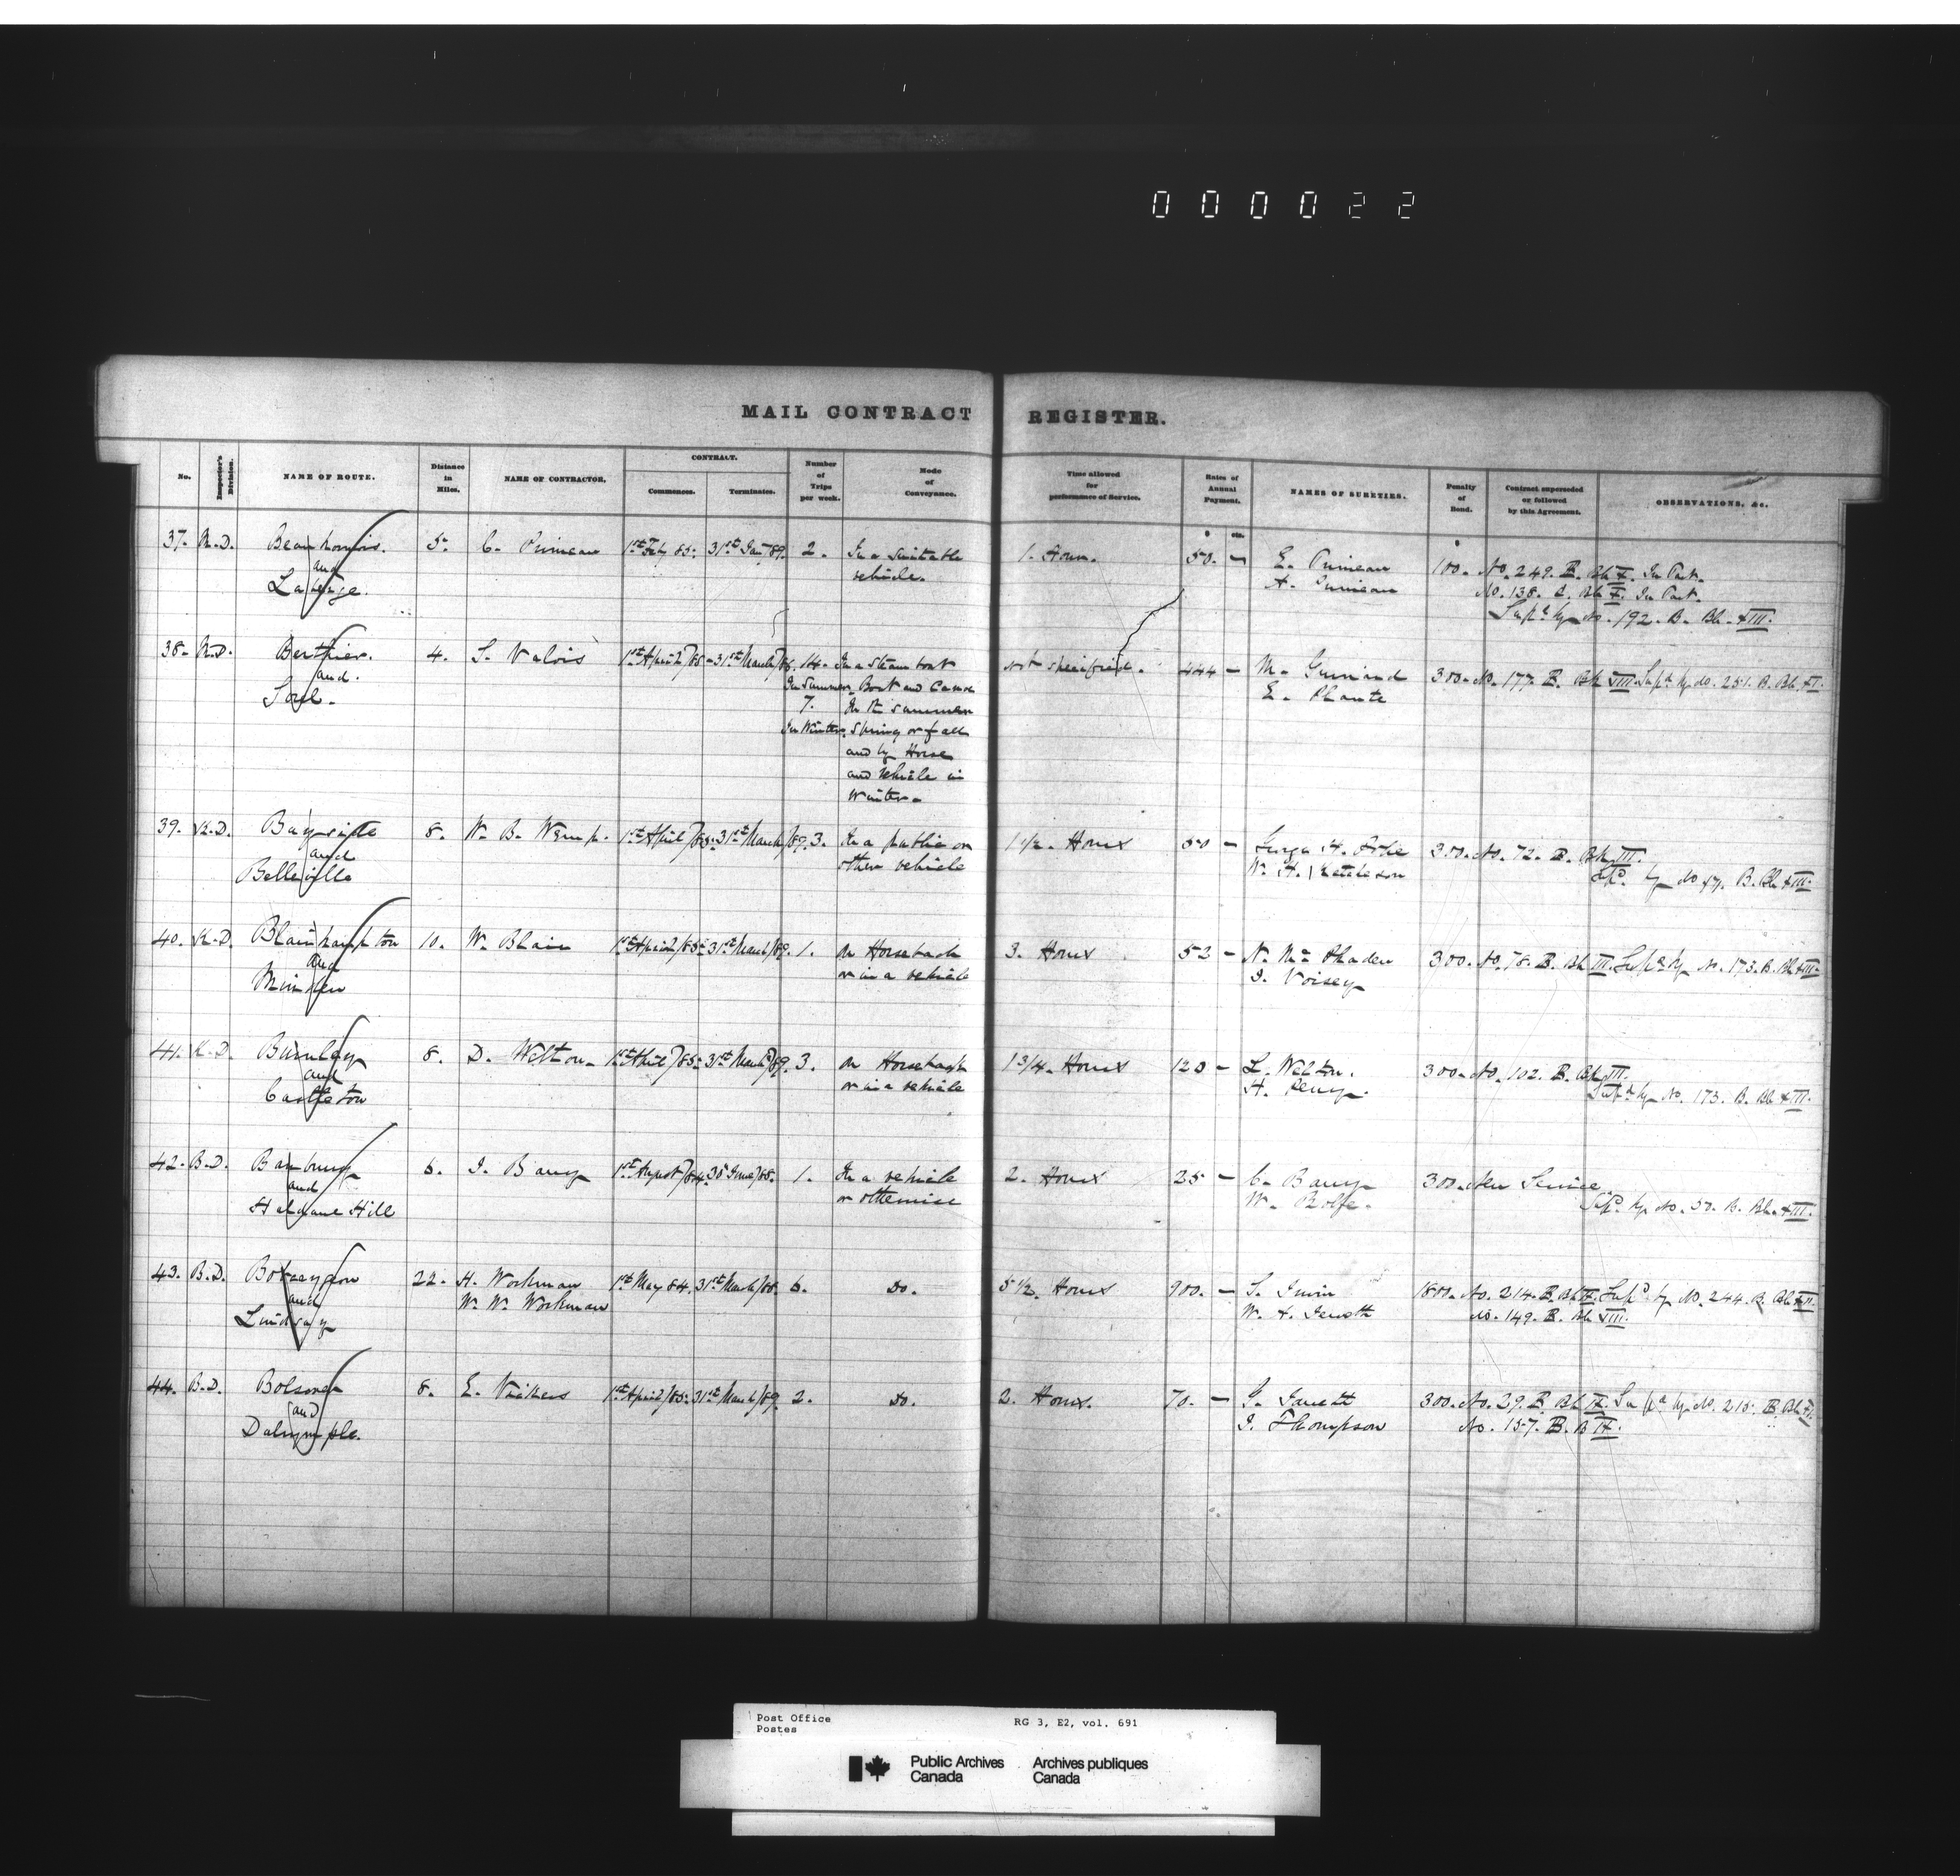 000022
MAIL CONTRACT REGISTER.
No. Inspector's Division. NAME OF ROUTE. Distance in Miles. NAME OF CONTRACTOR. CONTRACT. Commences. Terminates. Number of Trips per week. Mode of Conveyance. Time allowed for performance of Service. Rates of Annual Payment. NAMES OF SURETIES. Penalty of Bond. Contract superseded or followed by this Agreement. OBSERVATIONS, &c.
$ cts. $
37. M.D. Beauharnois. 5. C. Primeau 1st Feby 85. 31st Jany 89. 2. In a suitable 1. Hour. 50. — E. Primeau 100. No. 249. B. Bk X. In Part.
and vehicle. A. Primeau No. 138. B. Bk X. In Part.
Laberge. Supd by No. 192. B. Bk. XIII.
38. M.D. Berthier. 4. S. Valois 1st April/85. 31st March/86. 14. In a Steamboat Not specified. 444 — M. Guinand 300. No. 177. B. Bk VIII. Supd by No. 251. B. Bk. XI.
and. In Summer Boat and Canoe E. Plante
Sorel. 7. In the summer
In Winter. Spring or fall
and by Horse
and Vehicle in
Winter.
39. K.D. Bayside 8. W. B. Wemp. 1st April/85. 31st March/89. 3. In a public or 1 1/2. Hours 50 — George H. 300. No. 72. B. Bk III.
and other vehicle W. H. Ketcheson Supd. by No 57. B. Bk XIII.
Belleville
40. K.D. Blairhampton 10. W. Blair 1st April/85. 31st March/89. 1. On Horseback 3. Hours 52 — N. McPhaden 300. No. 78. B. Bk III. Supd by No. 173. B. Bk XIII.
and or in a vehicle I. Voisey
Minden
41. K.D. Burnley 8. D. Welton. 1st April/85. 31st March/89. 3. On Horseback 1 3/4. Hours 120 — L. Welton. 300. No. 102. B. Bk III.
and or in a vehicle H. Perry. Supd by No. 173. B. Bk XIII.
Castleton
42. B.D. Banbury 6. I. Barry 1st August/84. 30 June/88. 1. In a vehicle 2. Hours 25 — C. Barry 300. New Service
and or otherwise W. Rolfe. Supd. by No. 50. B. Bk. XIII.
Haldane Hill
43. B.D. Bobcaygeon 22. H. Workman 1st May 84. 31st March/88. 6. Do. 5 1/2. Hours 900. — S. Irwin 1800. No. 214. B. Bk IX. Supd by No. 244. B. Bk XII.
and W. W. Workman W. H. No. 149. B. Bk VIII.
Lindsay
44. B.D. Bolsover 8. E. Vickers 1st April/85. 31st March/89. 2. Do. 2. Hours. 70. — J. Jarrett 300. No. 29. B. Bk IX. Supd by No. 215. B. Bk XI.
and J. Thompson No. 157. B. B IX.
Dalrymple.
Post Office RG 3, E2, vol. 691
Postes
Public Archives Archives publiques
Canada Canada